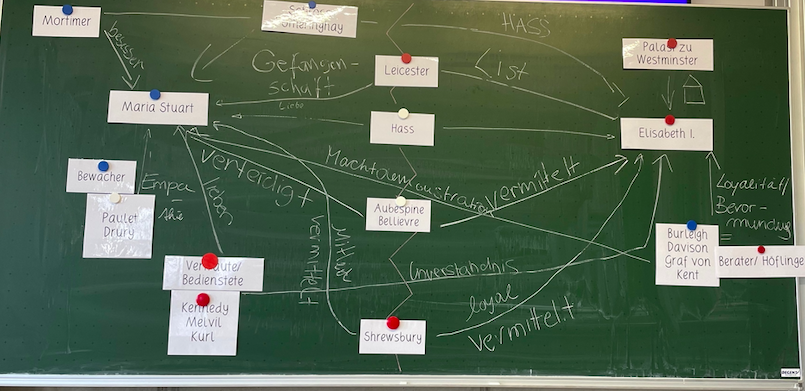 Mortimer
Schloss
HASS
Palast zu
Westminster
besser
Gefangen-
schaft
Leicester
List
Liebe
Maria Stuart
Hass
Elisabeth I.
Bewacher
Paulet
Drury
Empa-
thie
lieben
verteidigt
Machtdemonstration
vermittelt
Aubespine
Bellievre
Loyalität/
Bevor-
mundung
Burleigh
Davison
Graf von
Kent
=
Berater/ Höflinge
Vertraute/
Bedienstete
Kennedy
Melvil
Kurl
vermittelt
Unverständnis
loyal
vermittelt
Shrewsbury